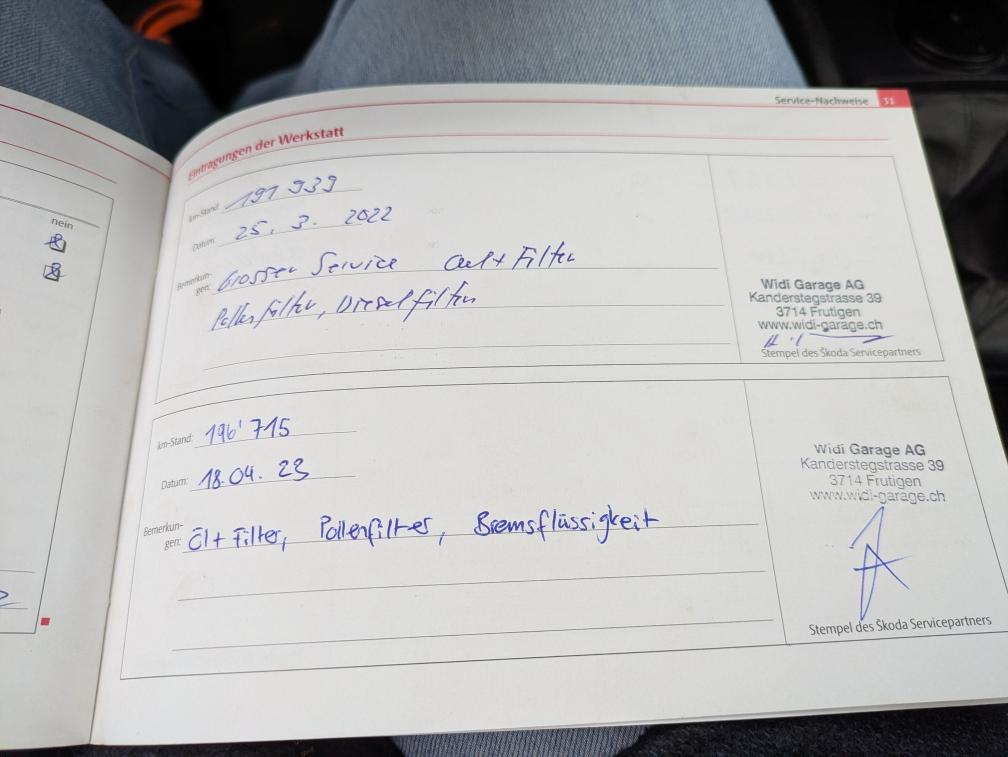 Service-Nachweise 31
nein
Eintragungen der Werkstatt
km-Stand: 191 939
Datum: 25. 3. 2022
Bemerkun-
gen: Grosser Service Oel + Filter
Pollenfilter, Dieselfilter
Widi Garage AG
Kanderstegstrasse 39
3714 Frutigen
www.widi-garage.ch
Stempel des Škoda Servicepartners
km-Stand: 196'715
Datum: 18.04.23
Bemerkun-
gen: Öl + Filter, Pollenfilter, Bremsflüssigkeit
Widi Garage AG
Kanderstegstrasse 39
3714 Frutigen
www.widi-garage.ch
Stempel des Škoda Servicepartners